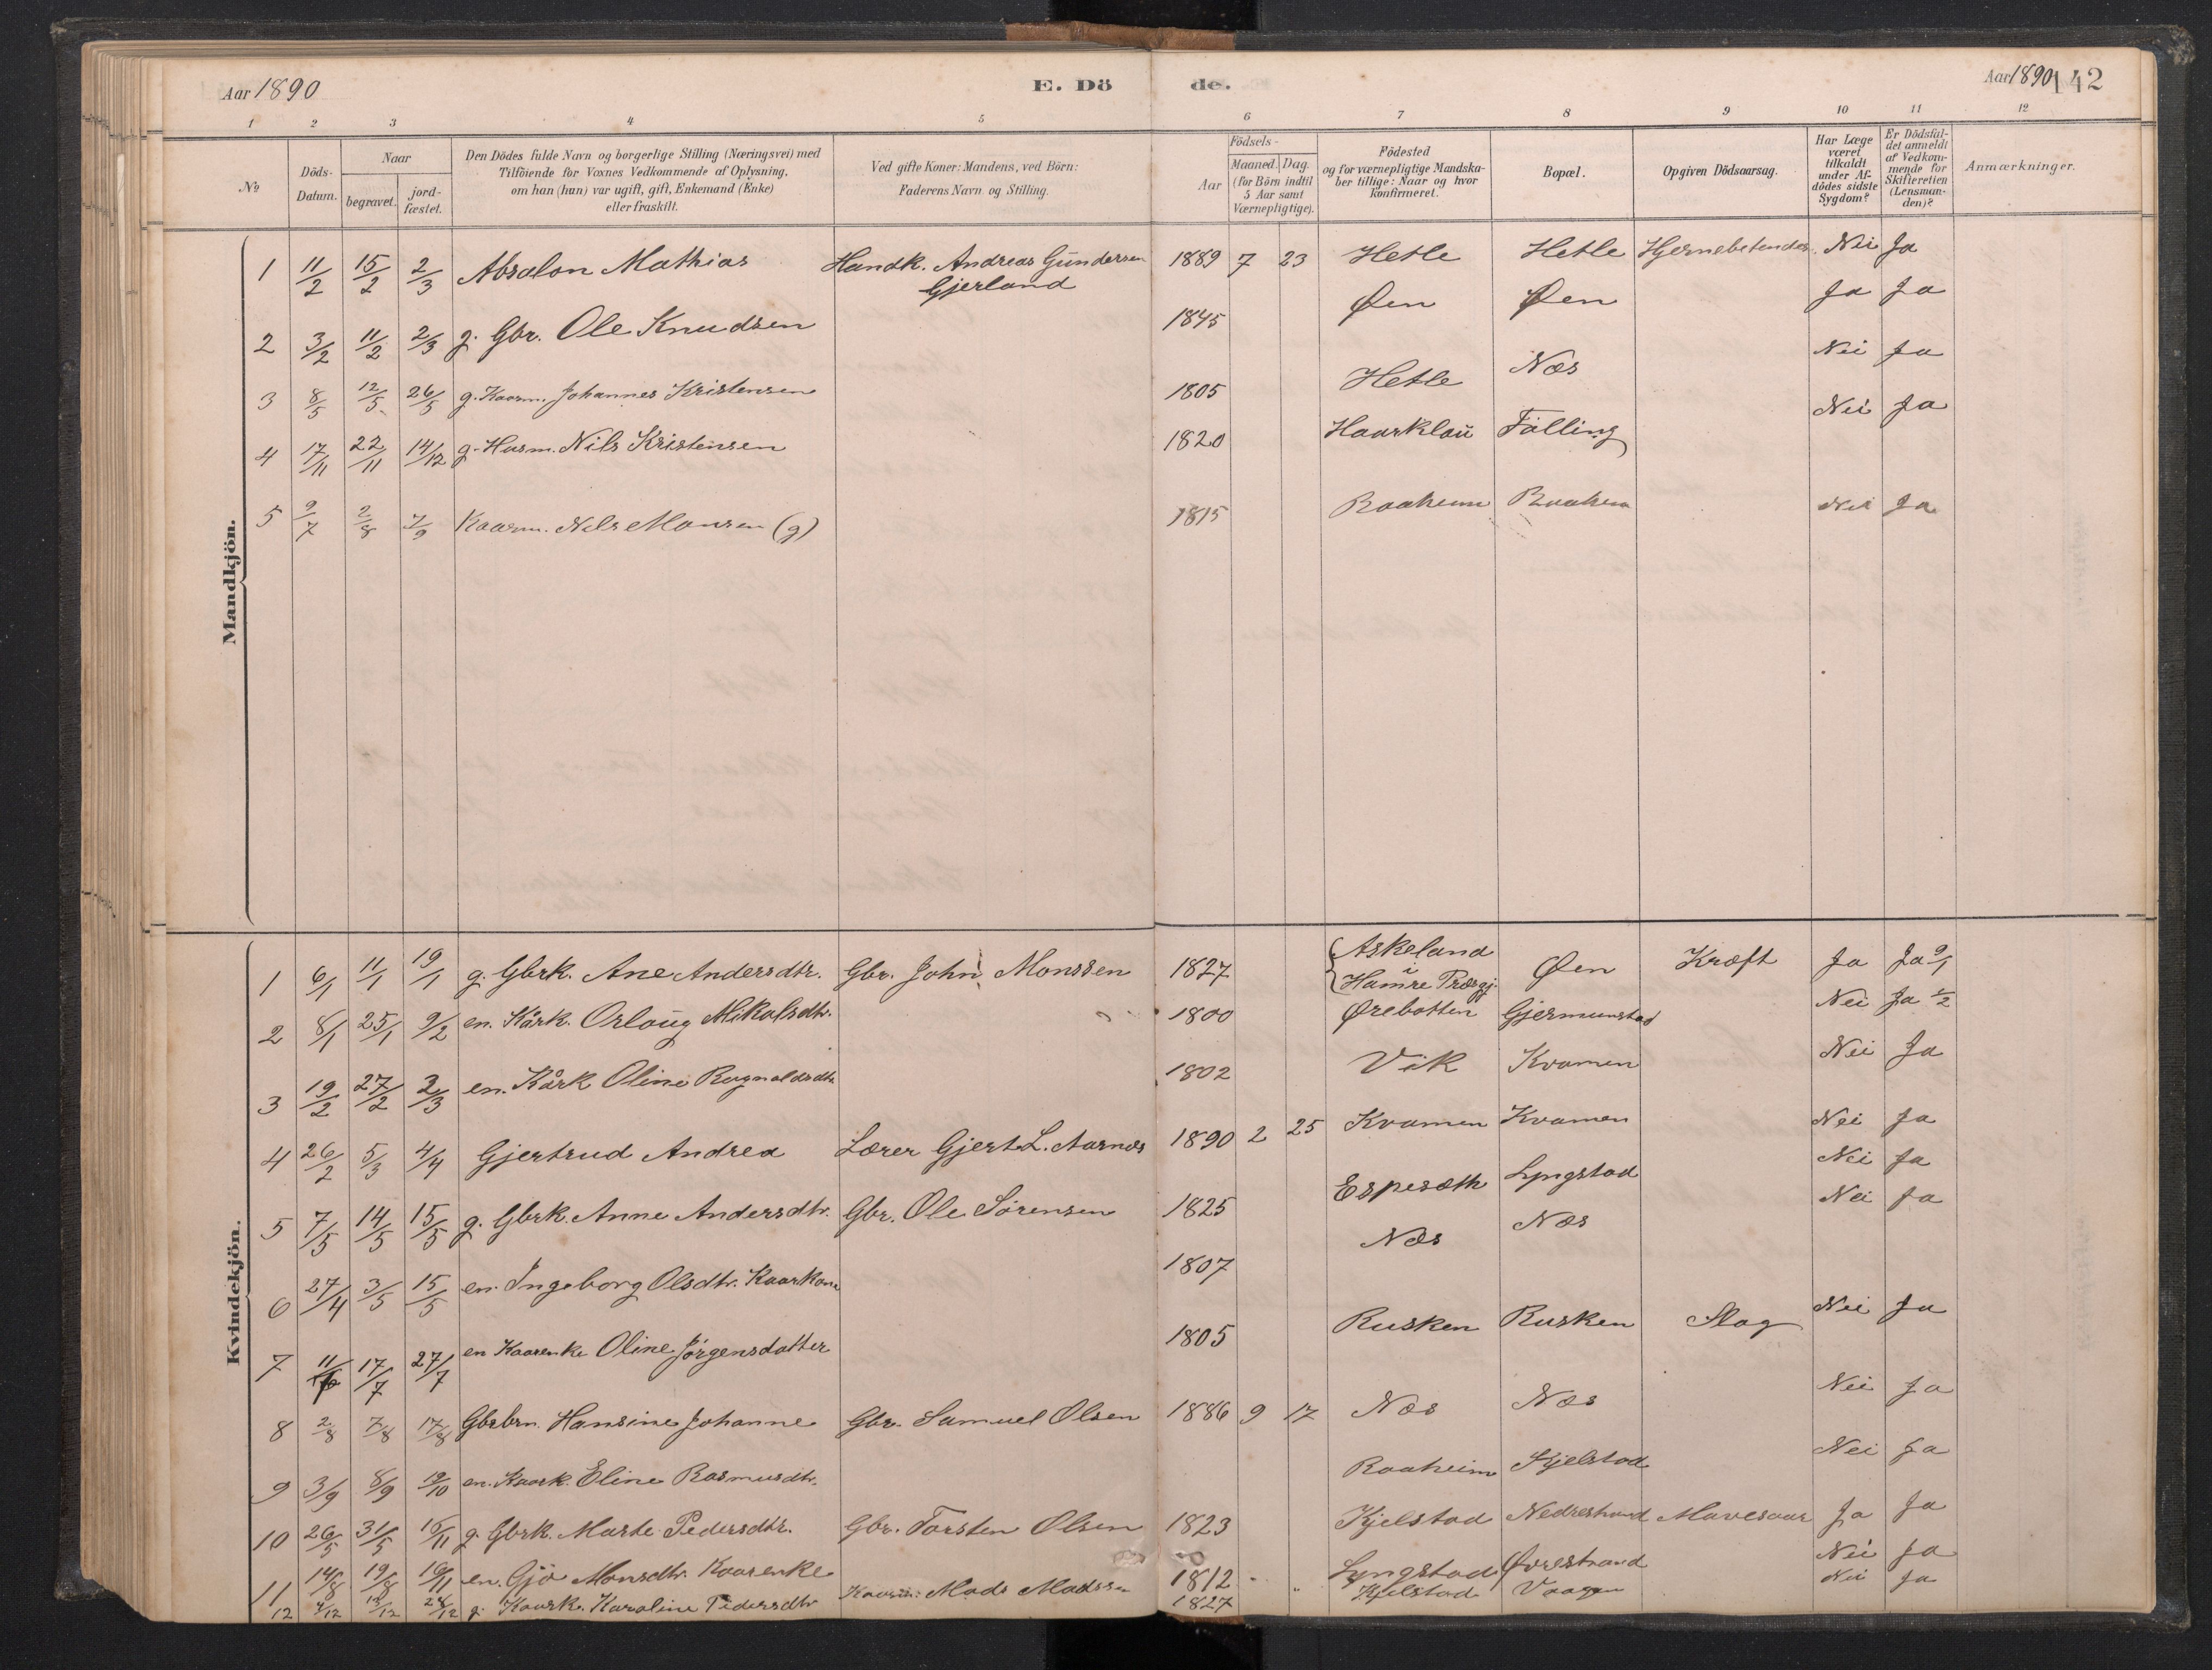 Aar 1890
E. Dö
de.
Aar 1890
142
1 2 3 4 5 6 7 8 9 10 11 12
№
Döds-Datum.
Naar
begravet.
jord-fæstet.
Den Dödes fulde Navn og borgerlige Stilling (Næringsvei) med
Tilföiende for Voxnes Vedkommende af Oplysning,
om han (hun) var ugift, gift, Enkemand (Enke)
eller fraskilt.
Ved gifte Koner: Mandens, ved Börn:
Faderens Navn og Stilling.
Födsels-
Aar
Maaned. Dag.
(for Börn indtil
5 Aar samt
Værnepligtige).
Födested
og for værnepligtige Mandska-
ber tillige: Naar og hvor
konfirmeret.
Bopæl.
Opgiven Dödsaarsag.
Har Læge
været
tilkaldt
under Af-
dödes sidste
Sygdom?
Er Dödsfal-
det anmeldt
af Vedkom-
mende for
Skifteretten
(Lensman-
den)?
Anmærkninger.
Mandkjön.
1 11/2 15/2 2/3 Absalon Mathias Handk. Andreas Gundersen 1889 7 23 Hetle Hetle Hjernebetændes. Nei Ja
Gjerland
2 3/2 11/2 2/3 g. Gbr. Ole Knudsen 1845 Øen Øen Ja Ja
3 8/5 12/5 26/5 g. Kaarm. Johannes Kristensen 1805 Hetle Næs Nei Ja
4 17/11 22/11 14/12 g. Husm. Nils Kristensen 1820 Haarklau Fälling Nei Ja
5 9/7 2/8 7/9 Kaarm. Nils Monsen (g) 1815 Raaheim Raaheim Nei Ja
Kvindekjön.
1 6/1 11/1 19/1 g. Gbrk. Ane Andersdtr. Gbr. John Monssen 1827 Askeland Øen Kræft Ja Ja 9/1
Hamre Præsgj.
2 8/1 25/1 9/2 en. Kårk. Orloug Mikalsdtr. 1800 Ørebotten Gjermunstad Nei Ja 1/2
3 19/2 27/2 2/3 en. Kårk Oline Ragnaldsdtr 1802 Vik Kvamen Nei Ja
4 26/2 5/3 4/4 Gjertrud Andrea Lærer Gjert L. Aarnæs 1890 2 25 Kvamen Kvamen Nei Ja
5 7/5 14/5 15/5 g. Gbrk. Anne Andersdtr. Gbr. Ole Sörensen 1825 Espesæth Lyngstad Nei Ja
6 27/4 3/5 15/5 en. Ingeborg Olsdtr. Kaarkone 1807 Næs Næs Nei Ja
7 11/7 17/7 27/7 en Kaarenke Oline Jörgensdatter 1805 Rusken Rusken Slag Nei Ja
8 2/8 7/8 17/8 Gbrbrn. Hansine Johanne Gbr. Samuel Olsen 1886 9 17 Næs Næs Nei Ja
9 3/9 8/9 19/10 en. Kaark. Eline Rasmusdtr. Raaheim Kjelstad Nei Ja
10 26/5 31/5 16/11 g. Gbrk. Marte Pedersdtr. Gbr. Torsten Olsen 1823 Kjelstad Nedrestrand Mavesaar Ja Ja
11 14/8 19/8 16/11 en. Gjö Monsdtr. Kaarenke 1812 Lyngstad Øvrestrand Nei Ja
12 4/12 12/12 28/12 g. Kaark. Karoline Pedersdtr Kaarm: Mads Madssen 1827 Kjelstad Vaagen Nei Ja